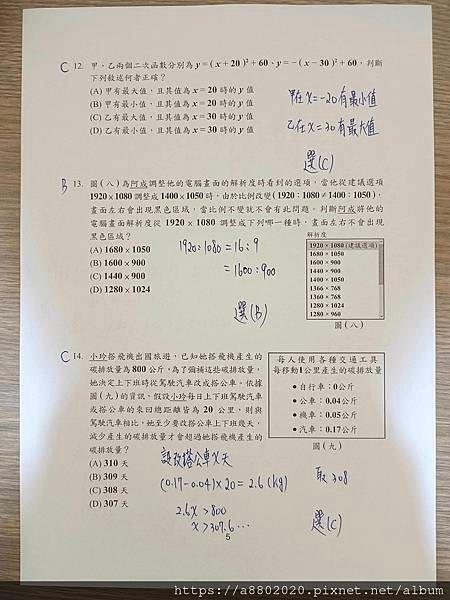 C 12. 甲、乙兩個二次函數分別為 y=(x+20)²+60、y=-(x-30)²+60,判斷
下列敘述何者正確?
(A) 甲有最大值,且其值為 x=20 時的 y 值
(B) 甲有最小值,且其值為 x=20 時的 y 值
(C) 乙有最大值,且其值為 x=30 時的 y 值
(D) 乙有最小值,且其值為 x=30 時的 y 值
甲在 x=-20 有最小值
乙在 x=30 有最大值
選(C)
B 13. 圖(八)為阿成調整他的電腦畫面的解析度時看到的選項,當他從建議選項
1920×1080 調整成 1400×1050 時,由於比例改變(1920:1080≠1400:1050),
畫面左右會出現黑色區域,當比例不變就不會有此問題。判斷阿成將他的
電腦畫面解析度從 1920×1080 調整成下列哪一種時,畫面左右不會出現
黑色區域?
(A) 1680×1050
(B) 1600×900
(C) 1440×900
(D) 1280×1024
1920:1080=16:9
=1600:900
選(B)
解析度
1920×1080(建議選項)
1680×1050
1600×900
1440×900
1400×1050
1366×768
1360×768
1280×1024
1280×960
圖(八)
C 14. 小玲搭飛機出國旅遊,已知她搭飛機產生的
碳排放量為 800 公斤,為了彌補這些碳排放量,
她決定上下班時從駕駛汽車改成搭公車。依據
圖(九)的資訊,假設小玲每日上下班駕駛汽車
或搭公車的來回總距離皆為 20 公里,則與
駕駛汽車相比,她至少要改搭公車上下班幾天,
減少產生的碳排放量才會超過她搭飛機產生的
碳排放量?
(A) 310 天
(B) 309 天
(C) 308 天
(D) 307 天
每人使用各種交通工具
每移動1公里產生的碳排放量
●自行車:0公斤
●公車:0.04公斤
●機車:0.05公斤
●汽車:0.17公斤
圖(九)
設改搭公車 x 天
(0.17-0.04)×20=2.6(kg)
2.6x>800
x>307.6…
取 308
選(C)
5
https://a8802020.pixnet.net/album